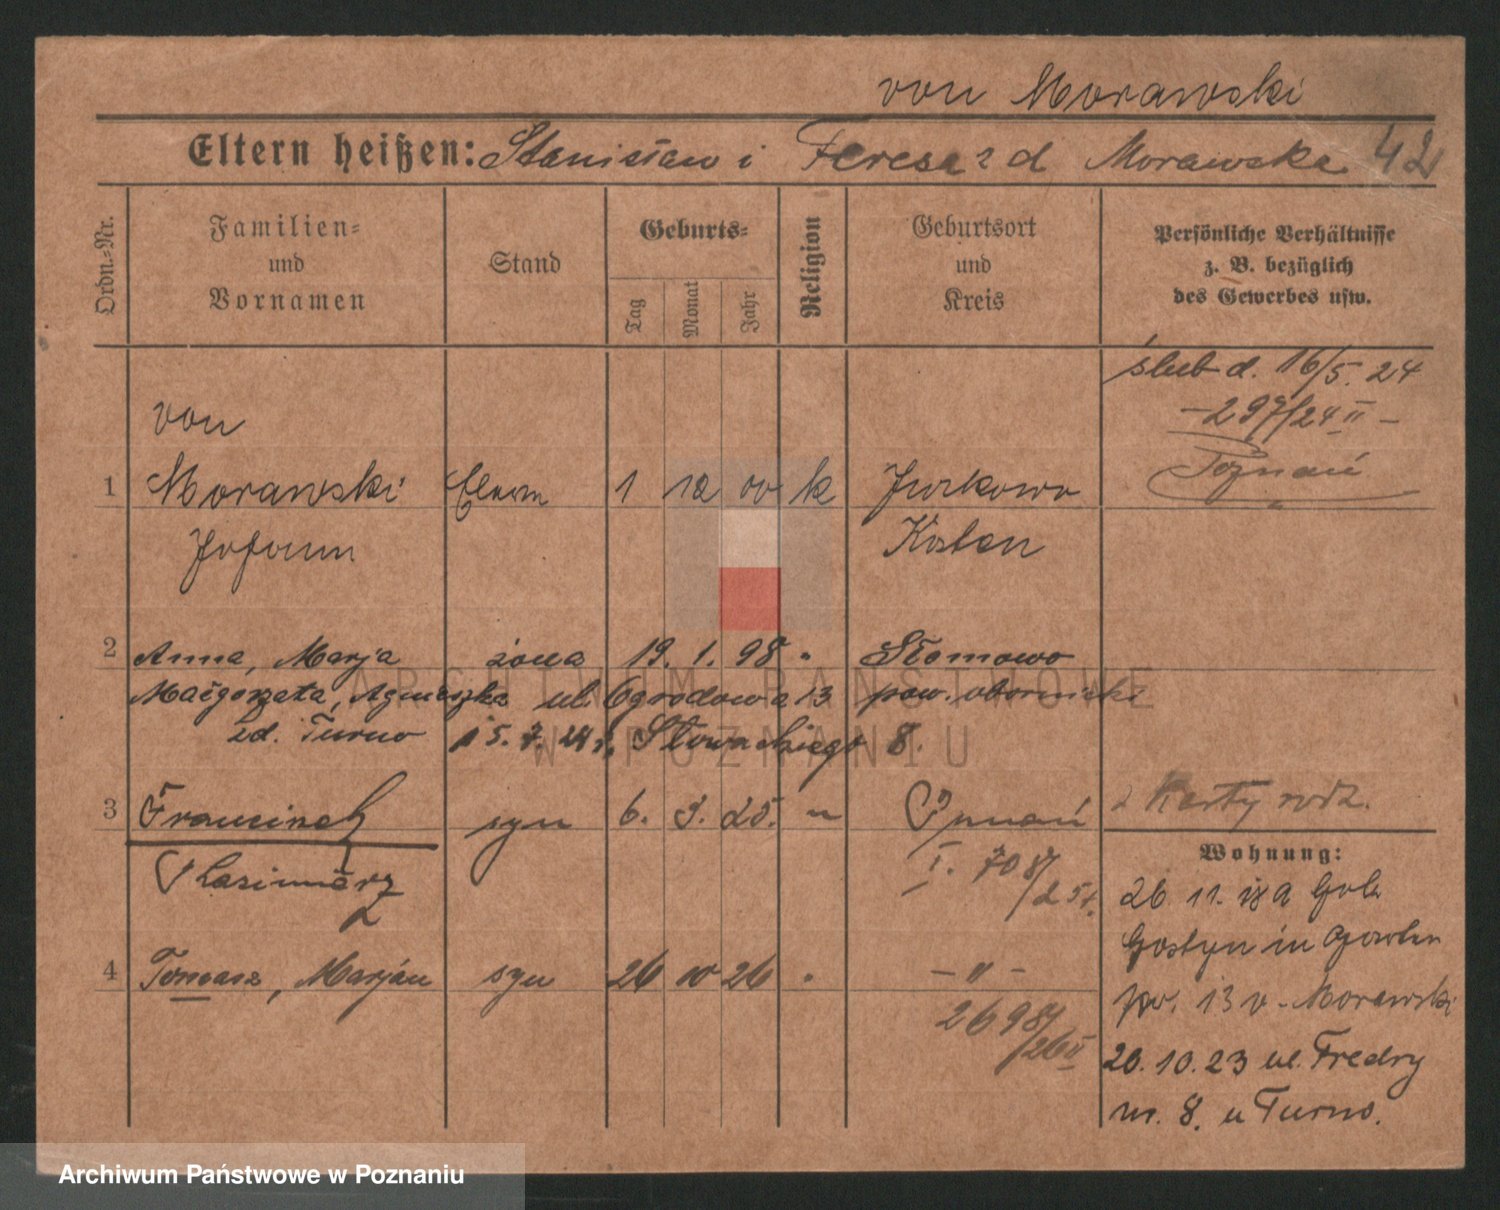 von Morawski
Eltern heißen: Stanisław i Teresa z d Morawska 42
Ordn.-Nr.
Familien- und Vornamen
Stand
Geburts-
Tag
Monat
Jahr
Religion
Geburtsort und Kreis
Persönliche Verhältnisse z. B. bezüglich des Gewerbes usw.
ślub d. 16/5. 24
- 297/24 II -
Poznań
von
1 Morawski 1 12 00 k Jurkowo
Johann Kosten
2 Anna, Marja żona 19. 1. 98 " Słomowo
Małgorzata, Agnieszka ul. Ogrodowa 13 pow. obornicki
zd. Turno 15. 7. 24 r. Słowackiego 8.
3 Franciszek syn 6. 3. 25. " Poznań
Kazimierz I. 708/25 r.
z Karty rodz.
4 Tomasz, Marjan syn 26 10 26 " - " -
2698/26 II
Wohnung:
26. 11.
Gostyn in
13 v. Morawski
20. 10. 23 ul. Fredry
nr. 8. u Turno.
ARCHIWUM PAŃSTWOWE
W POZNANIU
Archiwum Państwowe w Poznaniu